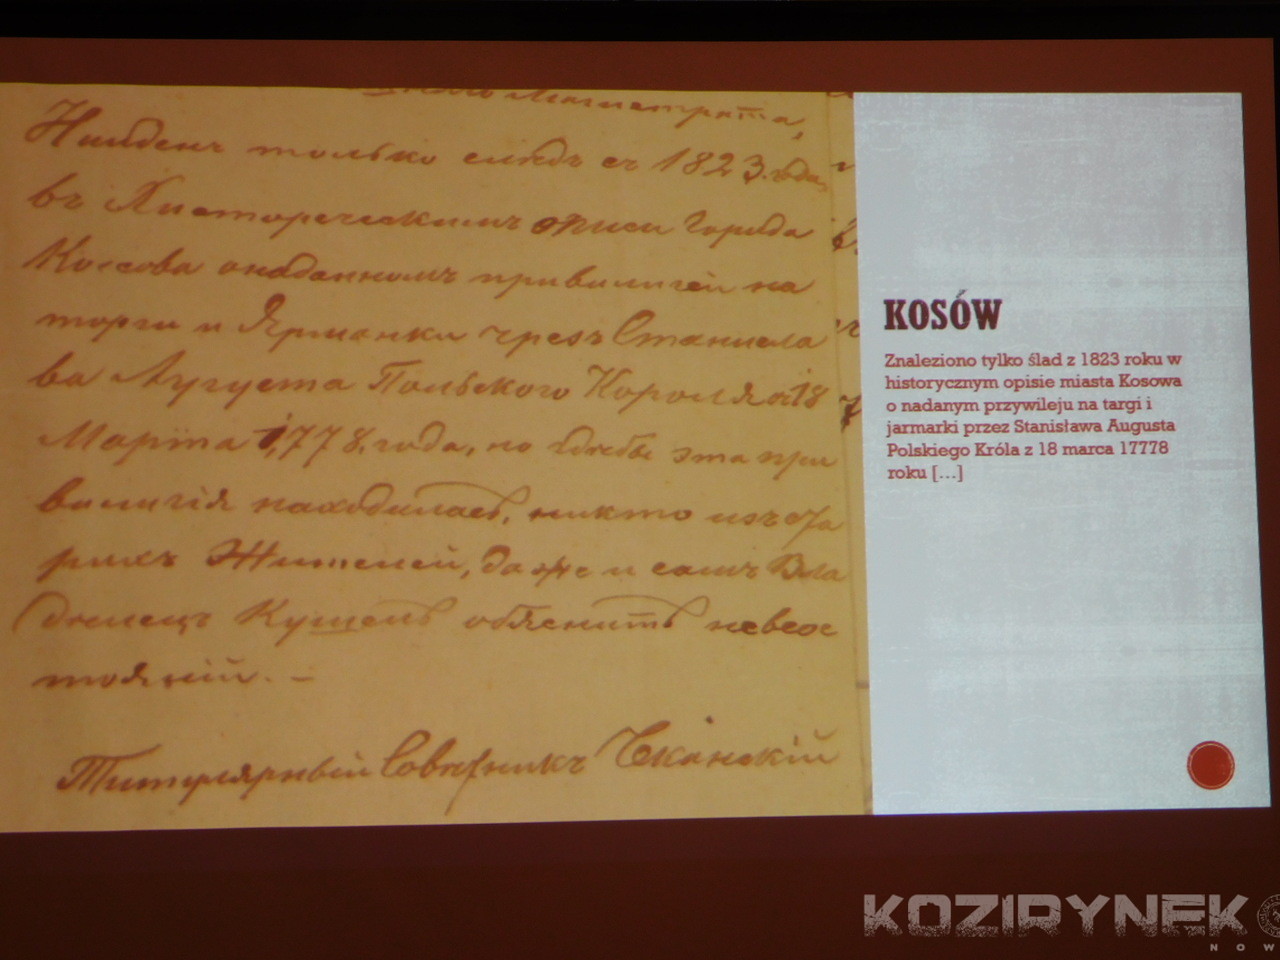 Магистрата,
Найденъ только слѣдъ съ 1823. года,
въ Хисторическимъ описи Города
Коссова онаданномъ привилигеи на
торги и Ярманки чрезъ Станисла
ва Аугуста Польского Короля съ 18
Марта 1,778. года, но гдебы эта при
вилигія находилась, никто изъ ста
рихъ Жителей, даже и самъ Вла
делецъ Кушель обяснить невсос
тояніи. —
Титулярный Советникъ Чеканскій
KOSÓW
Znaleziono tylko ślad z 1823 roku w
historycznym opisie miasta Kosowa
o nadanym przywileju na targi i
jarmarki przez Stanisława Augusta
Polskiego Króla z 18 marca 17778
roku [...]
KOZIRYNEK
NOW